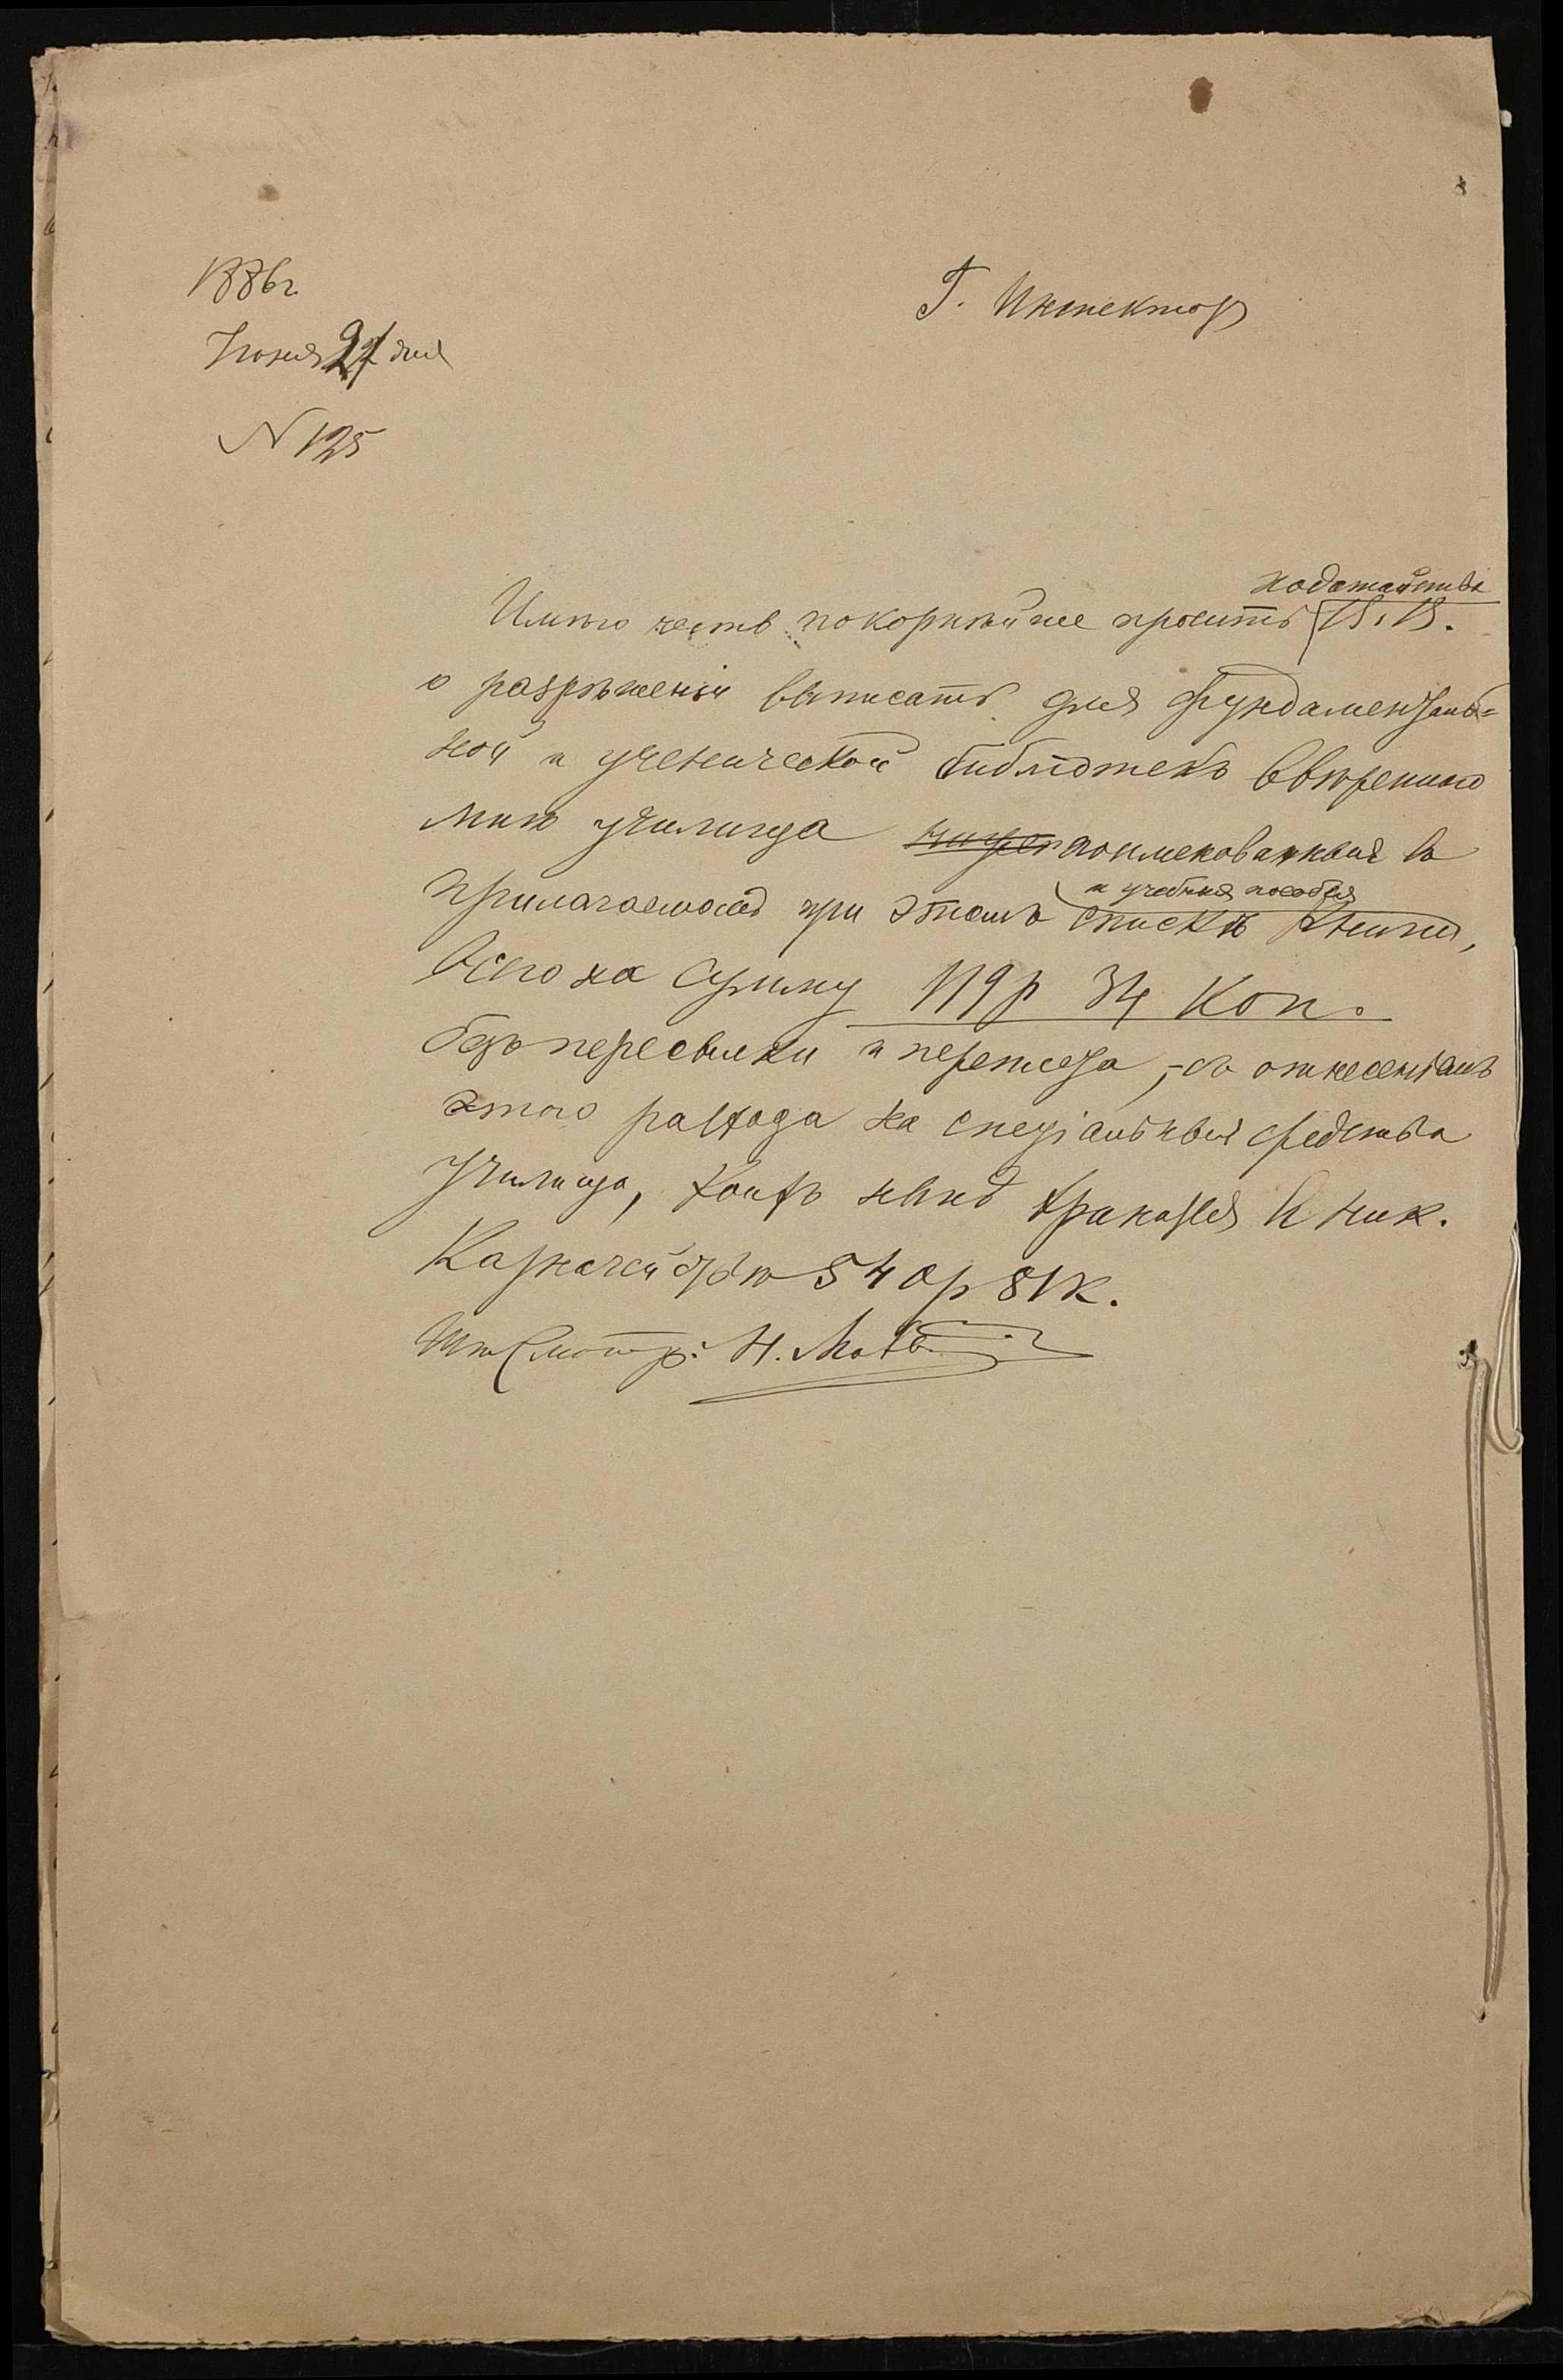 1886 г.
Г. Инспектор
Июня 27 дня
N 125
ходатайства
Имѣю честь покорнѣйше просить В. В.
о разрѣшеніи выписать для фундаменталь=
ной и ученической библіотекъ ввѣреннаго
мнѣ училища поименованныя въ
и учебныя пособія
прилагаемомъ при этомъ спискѣ книги,
всего на сумму 119 р 34 коп.
безъ пересылки и переплета, - съ отнесеніемъ
этого расхода на спеціальныя средства
училища, коихъ нынѣ хранится в Ник.
Казначействѣ 540 р 81 к.
Шт. Смотр: Н.